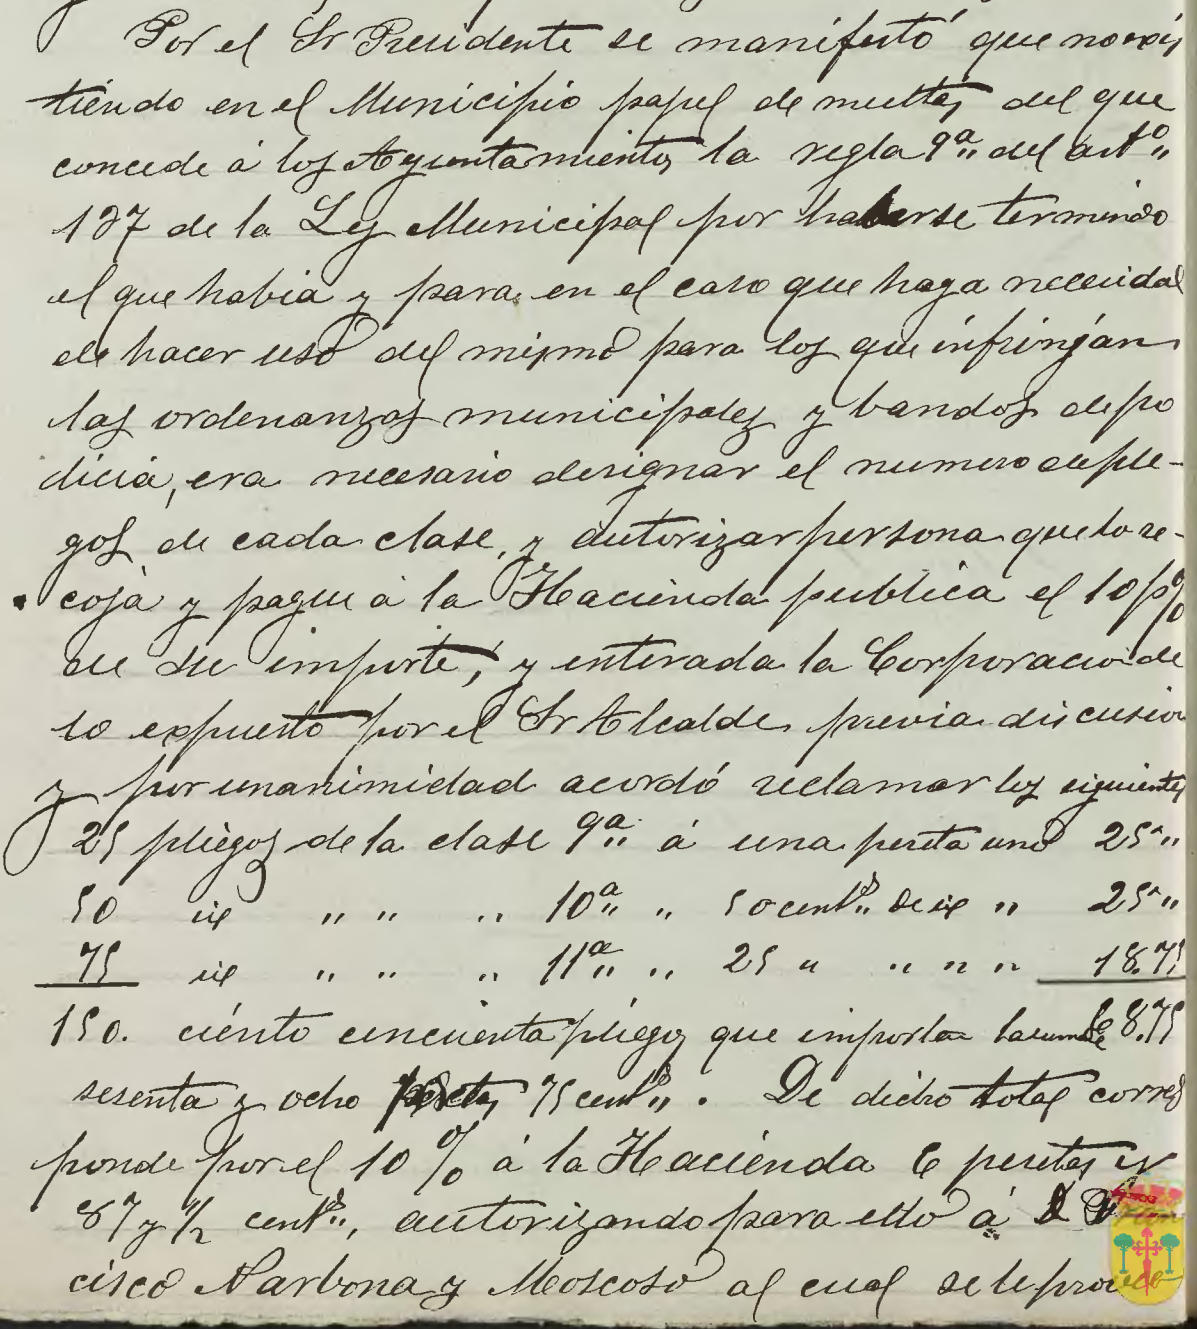 Por el Sr Presidente se manifestó que no exis
tiendo en el Municipio papel de multas del que
concede á los Ayuntamientos la regla 9ª del artº
137 de la Ley Municipal por haberse terminado
el que habia y para en el caso que haga necesidad
de hacer uso del mismo para los que infrinjan
las ordenanzas municipales y bandos de po
licia, era necesario designar el numero de plie-
gos de cada clase, y autorizar persona que lo re-
coja y pague á la Hacienda publica el 10 p%
de su importe, y enterada la Corporacion de
lo expuesto por el Sr Alcalde, previa discusion
y por unanimidad acordó reclamar los siguientes
25 pliegos de la clase 9ª á una peseta uno 25 "
50 id " " " 10ª " 50 centˢ de id " 25 "
75 id " " " 11ª " 25 " " " " " 18.75
150. ciento cincuenta pliegos que importan la suma de 68.75
sesenta y ocho pesetas 75 centˢ. De dicho total corres
ponde por el 10 % á la Hacienda 6 pesetas y
87 y 1/2 centˢ, autorizando para ello á D Fran
cisco Narbona y Moscoso al cual se le